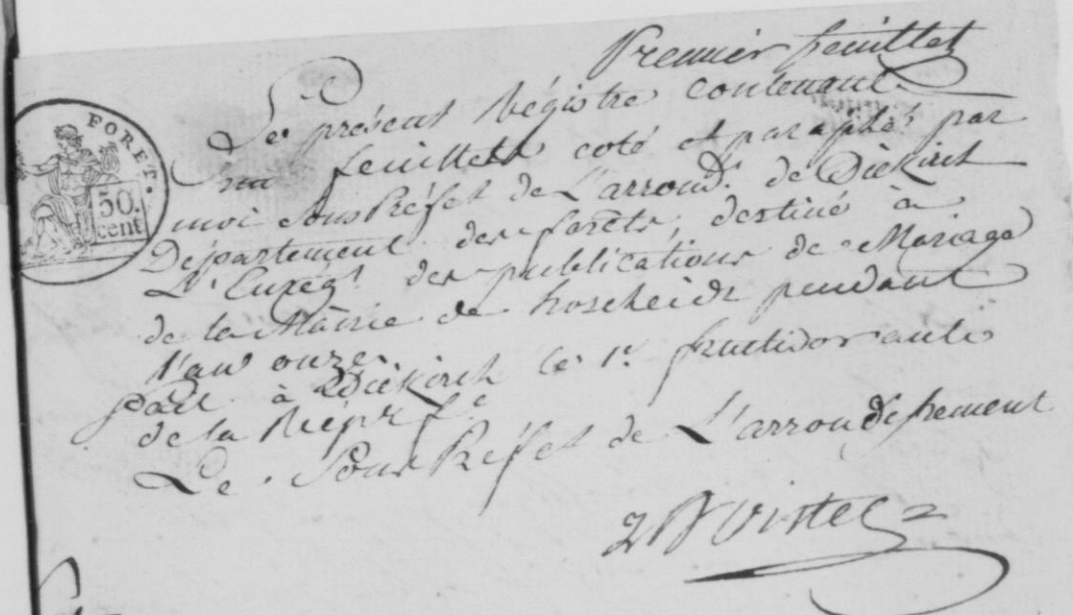 Premier feuillet
Le présent Régistre contenant
feuillets coté et paraphé par
moi Sous Préfet de L'arrond.t de Diekirch
Département des forêts, destiné à
L'Enreg.t des publications de Mariage
de la Mairie de hoscheidt pendant
l'an onze.
fait à Diekirch le 1.r fructidor an 10
de la Rép. f.se
Le Sous Préfet de L'arrondissement
FORET.
50.
cent